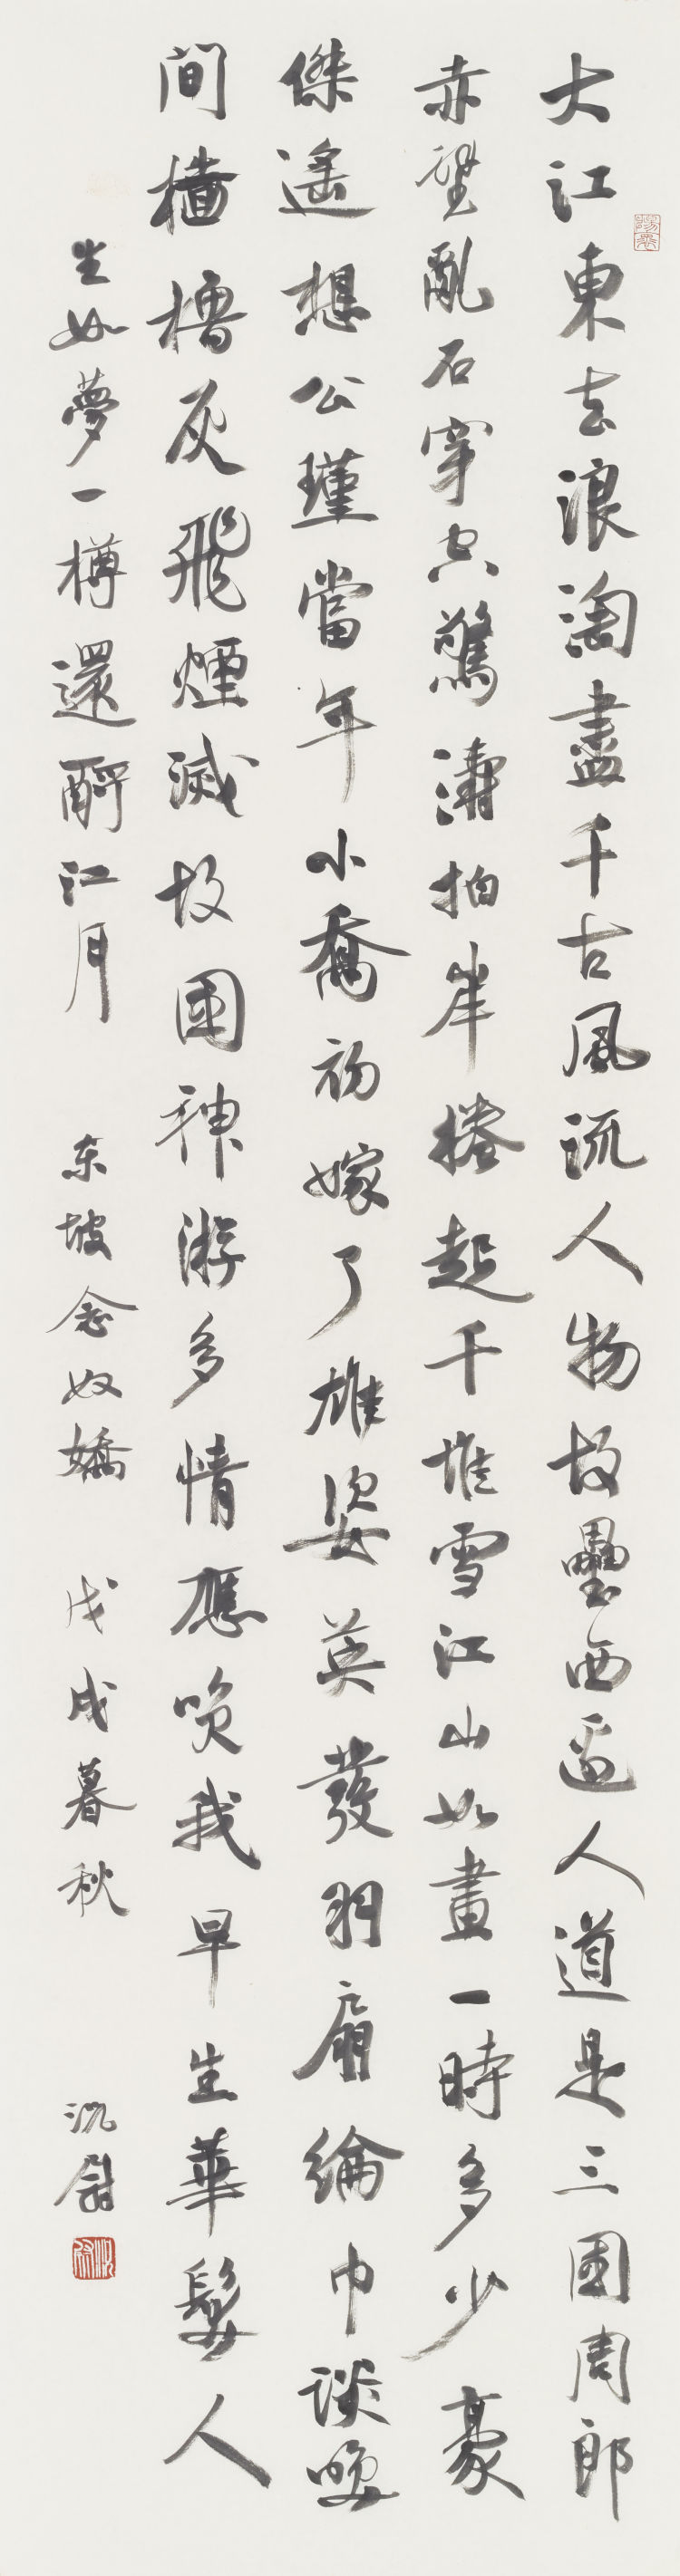 大江東去浪淘盡千古風流人物故壘西邊人道是三國周郎
赤壁亂石穿空驚濤拍岸捲起千堆雪江山如畫一時多少豪
傑遙想公瑾當年小喬初嫁了雄姿英發羽扇綸巾談笑
間檣櫓灰飛煙滅故國神游多情應笑我早生華髮人
生如夢一樽還酹江月 东坡念奴嬌 戊戌暮秋 沈尉